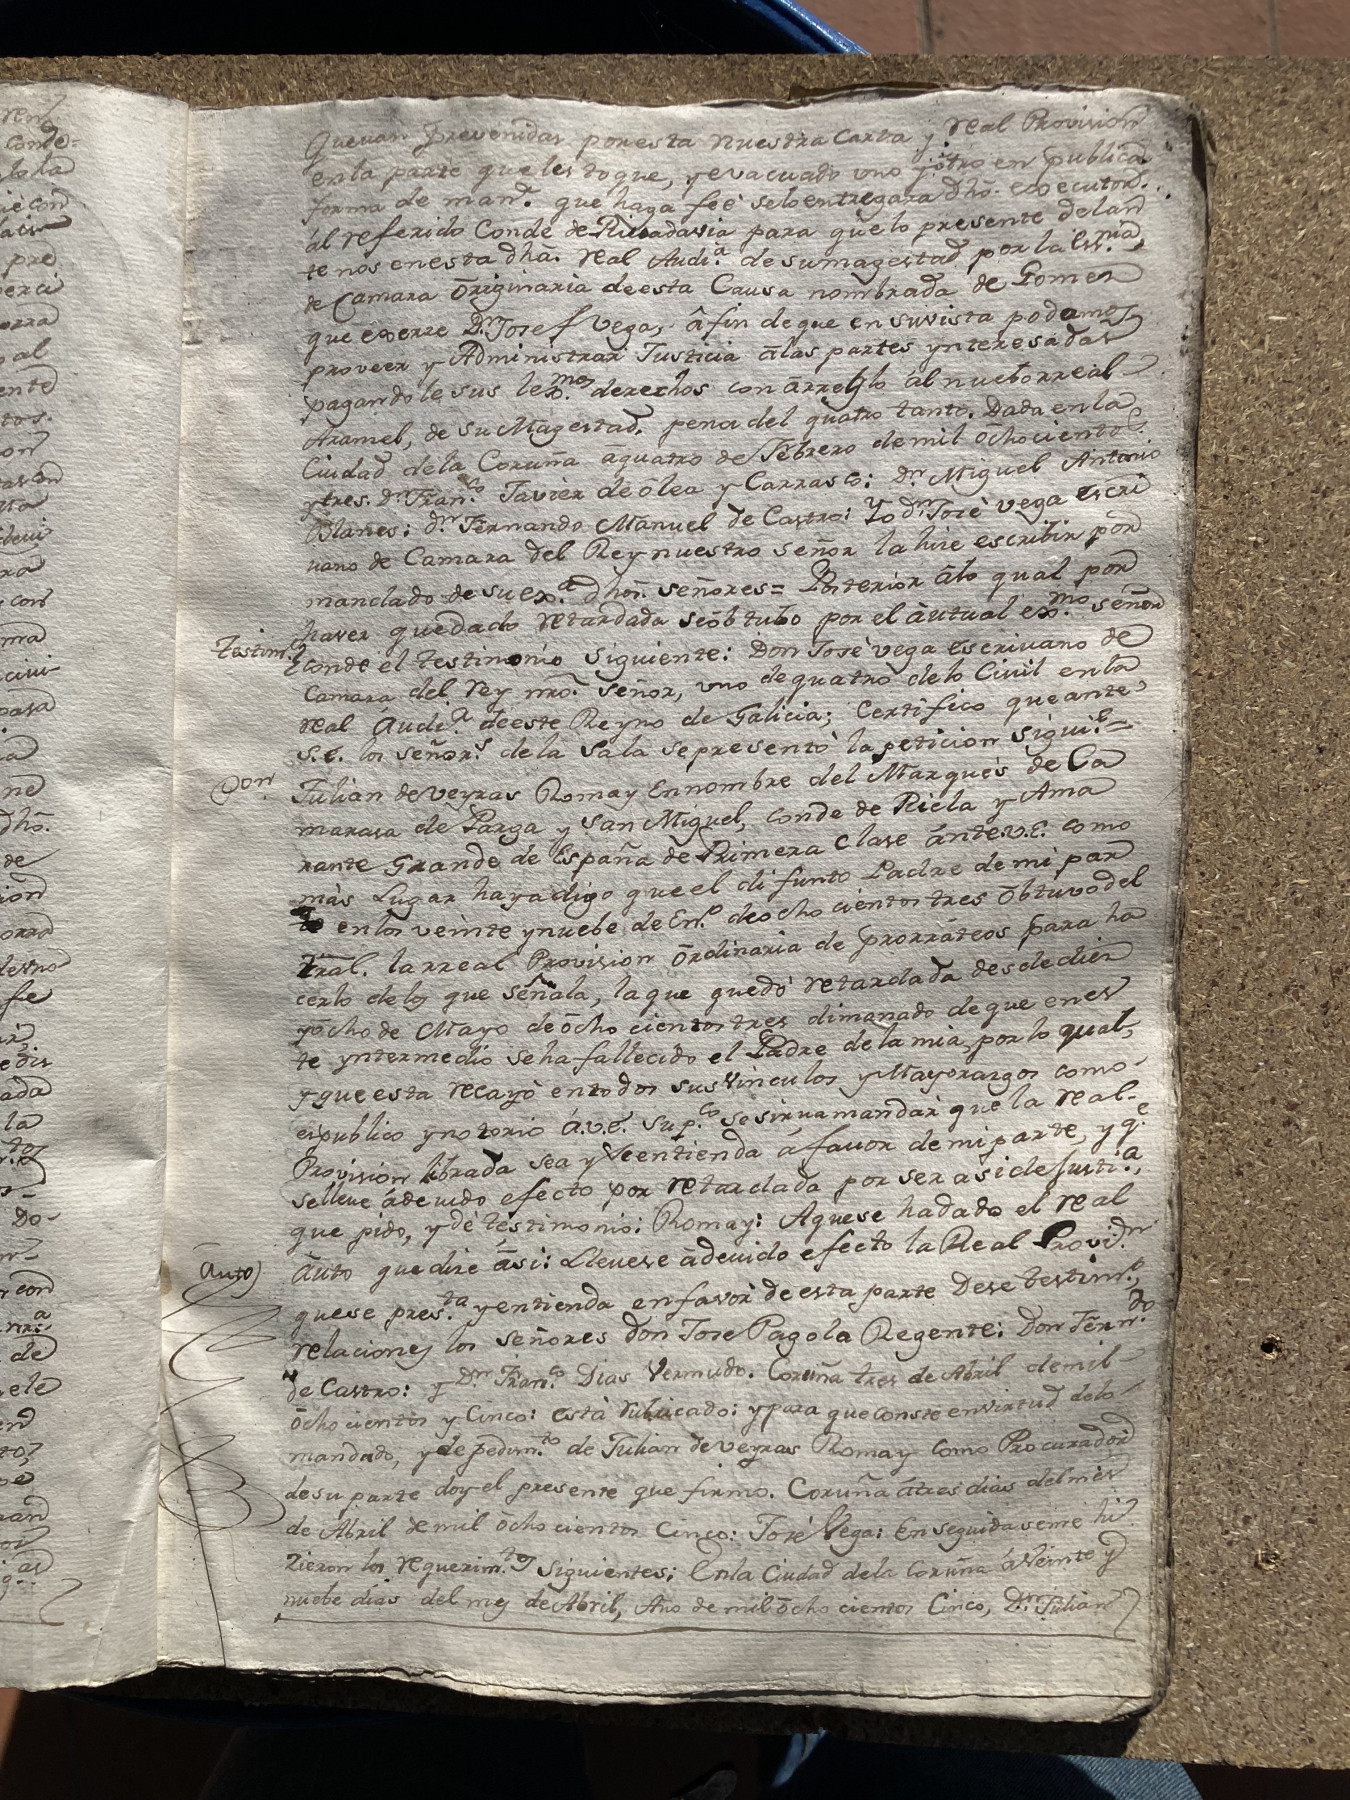 Quevan prevenidas por esta nuestra Carta y real Provision
en la parte que les toque, y evacuado uno y ótro en publica
forma de man.ª que haga feé se lo entregara dhō. executor.
ál referido Conde de Rivadavia para que lo presente delan
te nos en esta dhā. real Audi.ª de su magestad por la Es.nia
de Camara Ōriginaria de esta Causa nombrada de Gomez
que exerze D.n Josef Vega, â fin de que en su vista podamos
proveer y Administrar Justicia ā las partes ynteresadas
pagandole sus lex.mos derechos con ārreglo ál nuebo rreal
Aramel, de su Magestad. pena del quatro tanto. Dada en la
Ciudad de la Coruña ā quatro de Febrero de mil ōchocientos
y tres. D.n Fran.co Javier de ōlea y Carrasco: D.n Miguel Antonio
Blanes: d.n Fernando Manuel de Castro: Yo d.n José vega escri
uano de Camara del Rey nuestro señor la hize escribir por
mandado de su ex.ª dhos. señores= Posterior ālo qual por
haver quedado retardada se óbtubo por el áutual ex.mo señor
Testim.o Conde el testimonio siguiente: Don José vega escriuano de
Camara del rey nrō. señor, uno de quatro delo Civil en la
real Audi.ª de este Reyno de Galicia; Certifico que ante
S.E. los señor.s de la Sala se presentó la peticion sigui.e=
Don Julian de Veyras Romay En nombre del Marques de Ca
marasa de Parga y San Miguel, Conde de Ricla y Ama
rante Grande de España de Primera Clase ánte V.E. como
más Lugar haya digo que el difunto Padre de mi par
te en los veinte y nuebe de En.o de ocho cientos tres Obtuvo del
Tral. la rreal Provision ōrdinaria de prorráteos para ha
cerlo delos que señala, la que quedó retardada desde diez
y ōcho de Mayo de ōcho cientos tres dimanado de que en es
te yntermedio se ha fallecido el Padre de la mia, por lo qual,
y que esta recayó en todos sus Vinculos y Mayorazgos como
es publico y notorio á.V.E. sup.co se sirva mandar que la real
Provision librada sea y se entienda á favor de mi parte, y q.e
se lleve á devido efecto por retardada por ser asi de Justi.ª,
que pido, y dé testimonio: Romay: Aque se ha dado el real
Auto) áuto que dize ási: Llevese ādevido efecto la Real Provi.on
que se pres.ta y entienda en favor de esta parte Dese testim.o,
relaciones los señores don Jose Pagola Regente: Don Fern.do
de Castro: y D.n Fran.co Dias Vermudo. Coruña tres de Abril de mil
ōcho cientos y Cinco: está rubricado: y para que conste en virtud de lo
mandado, y de pedim.to de Julian de Veyras Romay como Procurador
de su parte doy el presente que firmo. Coruña átres dias del mes
de Abril de mil ōcho cientos Cinco: José Vega: En seguida se me hi
zieron los requerim.tos siguientes: En la Ciudad dela Coruña á Veinte y
nuebe dias del mes de Abril, Año de mil ōcho cientos Cinco, D.n Julian